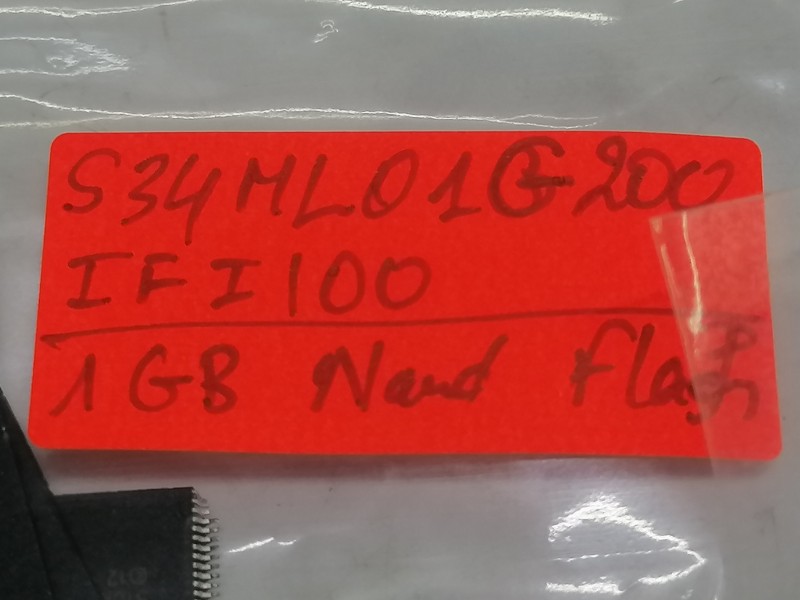 S34ML01G200
IFI100
1GB Nand Flash